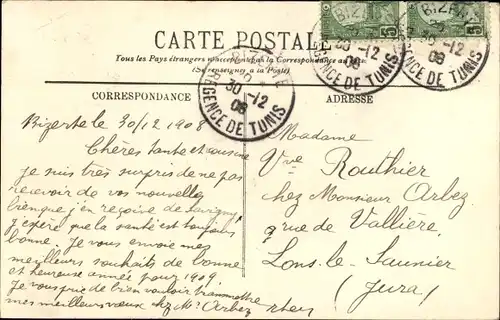 CARTE POSTALE
Tous les Pays étrangers n'acceptent pas la Correspondance au
(Se renseigner à la Poste)
CORRESPONDANCE
ADRESSE
BIZERTE
30-12
08
REGENCE DE TUNIS
BIZERTE
30-12
08
REGENCE DE TUNIS
5
5
Bizerte le 30/12 1908
Chères tante et cousine
Je suis très surpris de ne pas
recevoir de vos nouvelles
bien que j'en reçoive de Savigny
J'espère que la santé est toujours
bonne. Je vous envoie mes
meilleurs souhaits de bonne
et heureuse année pour 1909.
Je vous prie de bien vouloir transmettre
mes meilleurs vœux chez Mr Arbez
Madame
Vve Routhier
chez Monsieur Arbez
rue de Vallière
Lons-le-Saunier
(Jura)